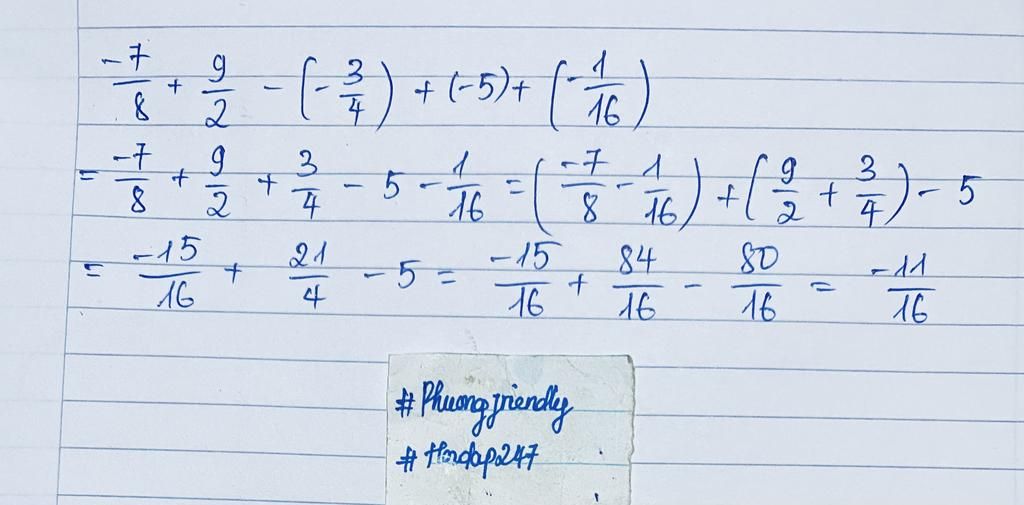 -7/8 + 9/2 - (-3/4) + (-5) + (-1/16)
= -7/8 + 9/2 + 3/4 - 5 - 1/16 = (-7/8 - 1/16) + (9/2 + 3/4) - 5
= -15/16 + 21/4 - 5 = -15/16 + 84/16 - 80/16 = -11/16
#Phuongfriendly
#Hoidap247